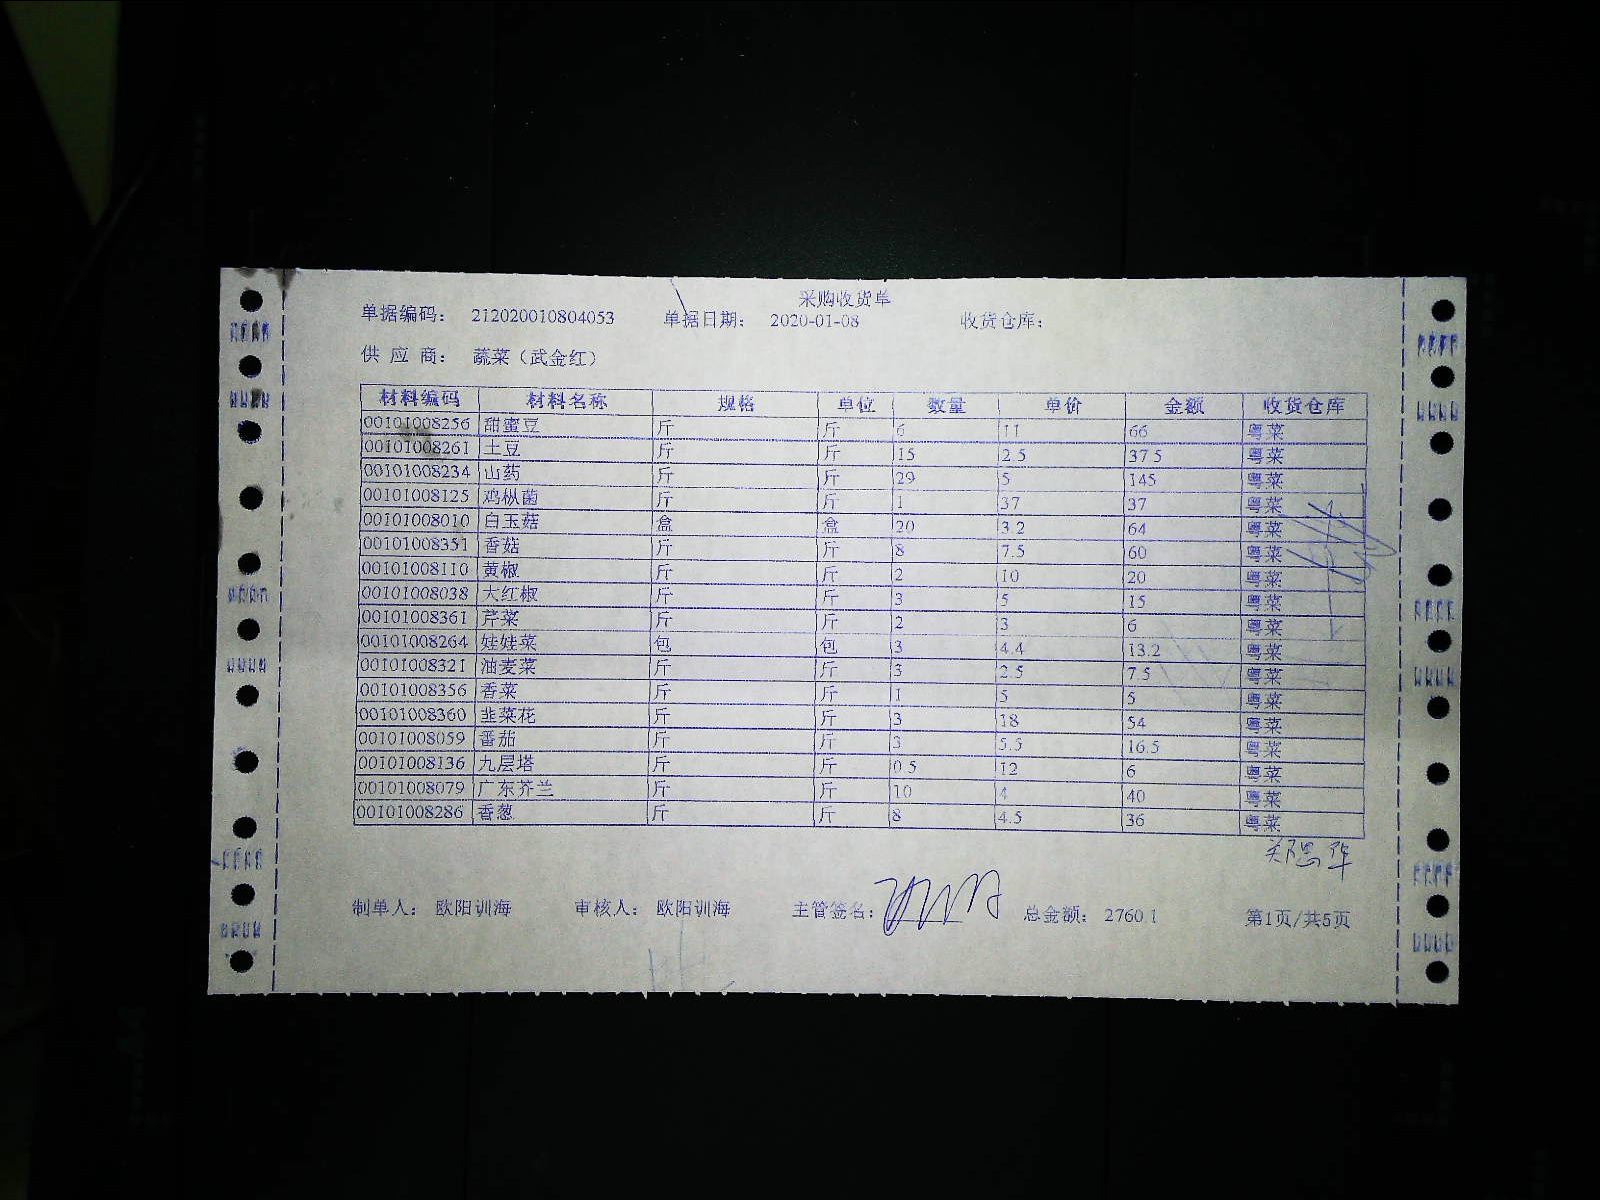 采购收货单
单据编码： 212020010804053 单据日期： 2020-01-08 收货仓库：
供 应 商： 蔬菜（武金红）
材料编码 材料名称 规格 单位 数量 单价 金额 收货仓库
00101008256 甜蜜豆 斤 斤 6 11 66 粤菜
00101008261 土豆 斤 斤 15 2.5 37.5 粤菜
00101008234 山药 斤 斤 29 5 145 粤菜
00101008125 鸡枞菌 斤 斤 1 37 37 粤菜
00101008010 白玉菇 盒 盒 20 3.2 64 粤菜
00101008351 香菇 斤 斤 8 7.5 60 粤菜
00101008110 黄椒 斤 斤 2 10 20 粤菜
00101008038 大红椒 斤 斤 3 5 15 粤菜
00101008361 芹菜 斤 斤 2 3 6 粤菜
00101008264 娃娃菜 包 包 3 4.4 13.2 粤菜
00101008321 油麦菜 斤 斤 3 2.5 7.5 粤菜
00101008356 香菜 斤 斤 1 5 5 粤菜
00101008360 韭菜花 斤 斤 3 18 54 粤菜
00101008059 番茄 斤 斤 3 5.5 16.5 粤菜
00101008136 九层塔 斤 斤 0.5 12 6 粤菜
00101008079 广东芥兰 斤 斤 10 4 40 粤菜
00101008286 香葱 斤 斤 8 4.5 36 粤菜
制单人： 欧阳训海 审核人： 欧阳训海 主管签名： 总金额： 2760.1 第1页/共5页